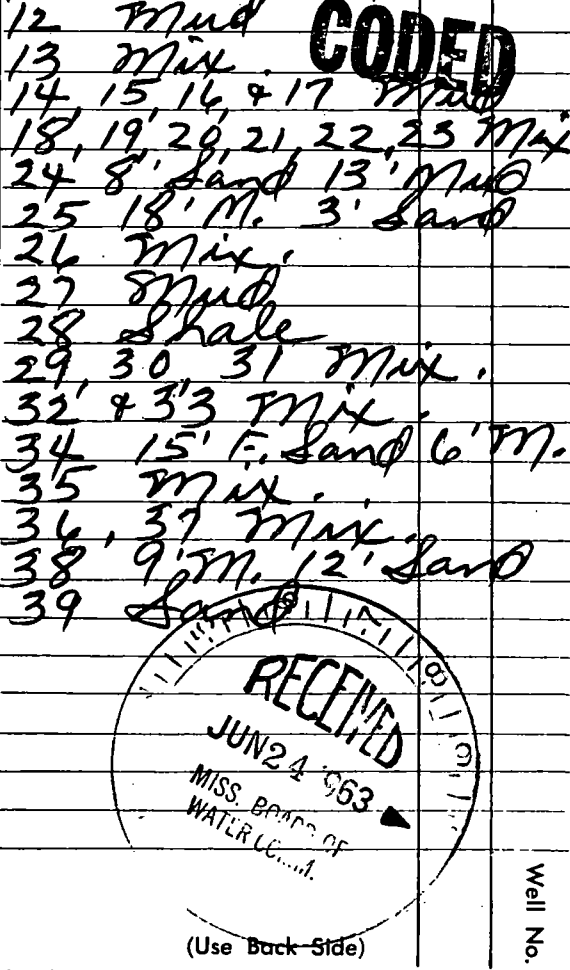 12 Mud
CODED
13 Mix.
14, 15, 16, & 17 Mud
18, 19, 20, 21, 22, 23 Mix
24 8' Sand 13' Mud
25 18' M. 3' Sand
26 Mix.
27 Mud
28 Shale
29, 30, 31 Mix.
32 & 33 Mix.
34 15' F. Sand 6' M.
35 Mix.
36, 37 Mix.
38 9' M. 12' Sand
39 Sand
RECEIVED
JUN 24 1963
MISS. BOARD OF
WATER COMM.
(Use Back Side)
Well No.